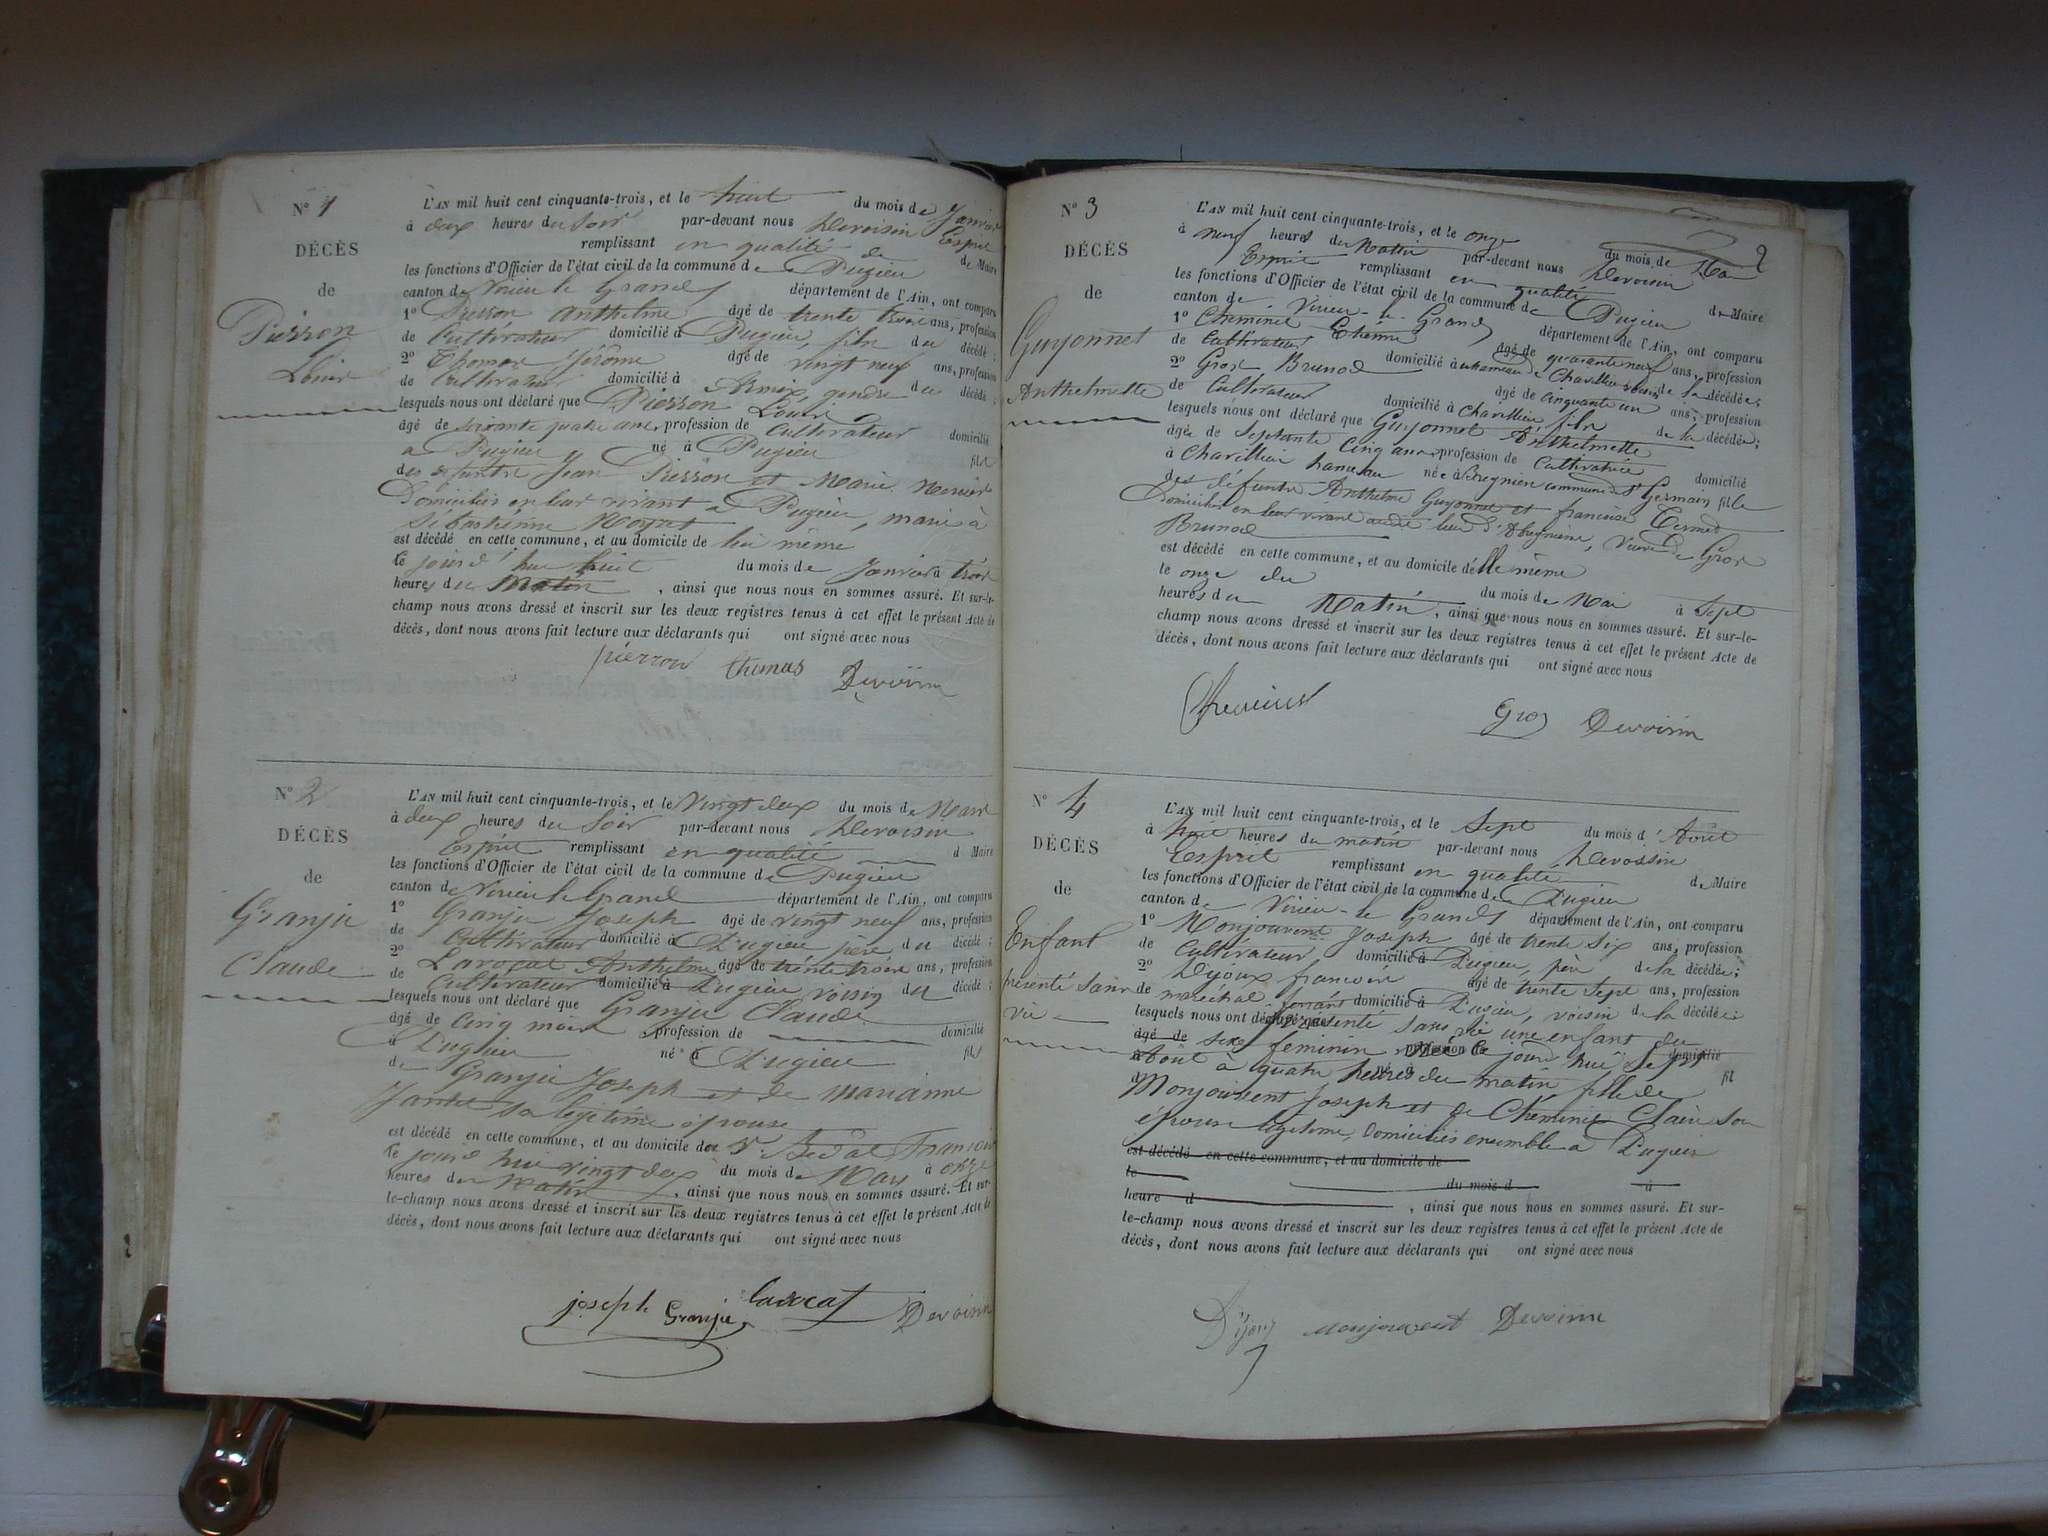 N° 1
DÉCÈS
de
Pierron
Louis
L'AN mil huit cent cinquante-trois, et le huit du mois de Janvier
à deux heures du soir par-devant nous Devoisin Esprit
remplissant en qualité de de Maire
les fonctions d'Officier de l'état civil de la commune de Pugieu
canton de Virieu le Grand département de l'Ain, ont comparu
1° Pierron Anthelme âgé de trente trois ans, profession
de Cultivateur domicilié à Pugieu, fils du décédé ;
2° Thomas Jérôme âgé de vingt neuf ans, profession
de Cultivateur domicilié à Armix, gendre du décédé ;
lesquels nous ont déclaré que Pierron Louis
âgé de soixante quatre ans, profession de Cultivateur domicilié
a Pugieu né à Pugieu fils
des défunts Jean Pierron et Marie
Domiciliés en leur vivant a Pugieu, marié à
est décédé en cette commune, et au domicile de lui même
le jourd'hui huit du mois de Janvier à trois
heures du Matin, ainsi que nous nous en sommes assuré. Et sur-le-
champ nous avons dressé et inscrit sur les deux registres tenus à cet effet le présent Acte de
décès, dont nous avons fait lecture aux déclarants qui ont signé avec nous
pierron thomas Devoisin
N° 2
DÉCÈS
de
Granju
Claude
L'AN mil huit cent cinquante-trois, et le Vingt deux du mois de Mars
à deux heures du Soir par-devant nous Devoisin
Esprit remplissant en qualité d Maire
les fonctions d'Officier de l'état civil de la commune de Pugieu
canton de Virieu le Grand département de l'Ain, ont comparu
1° Granju Joseph âgé de vingt neuf ans, profession
de Cultivateur domicilié à Pugieu père du décédé ;
2° Lavocat Anthelme âgé de trente trois ans, profession
de Cultivateur domicilié à Pugieu voisin du décédé ;
lesquels nous ont déclaré que Granju Claude
âgé de Cinq mois, profession de domicilié
à Pugieu né à Pugieu fils
de Granju Joseph et de Marianne
sa legitime épouse
est décédé en cette commune, et au domicile du Sr François
le jourd'hui vingt deux du mois de Mars à onze
heures du Matin, ainsi que nous nous en sommes assuré. Et sur-
le-champ nous avons dressé et inscrit sur les deux registres tenus à cet effet le présent Acte de
décès, dont nous avons fait lecture aux déclarants qui ont signé avec nous
joseph Granju Lavocat Devoisin
2
N° 3
DÉCÈS
de
Guyonnet
Anthelmette
L'AN mil huit cent cinquante-trois, et le onze du mois de Mai
à neuf heures du Matin par-devant nous Devoisin
Esprit remplissant en qualité de Maire
les fonctions d'Officier de l'état civil de la commune de Pugieu
canton de Virieu-le-Grand département de l'Ain, ont comparu
1° Cheminet Etienne âgé de quarante neuf ans, profession
de Cultivateur domicilié à hameau de Chavillieu voisin de la décédée ;
2° Gros Brunod âgé de cinquante un ans, profession
de Cultivateur domicilié à Chavillieu, fils de la décédée ;
lesquels nous ont déclaré que Guyonnet Anthelmette
âgée de septante cinq ans, profession de Cultivatrice domicilié
à Chavillieu hameau née à commune de St Germain fille
des défunts Anthelme Guyonnet et françoise
Domiciliés en leur vivant audit lieu d' , veuve de Gros
Brunod
est décédé en cette commune, et au domicile d'elle même
le onze du du mois de Mai à Sept
heures du Matin, ainsi que nous nous en sommes assuré. Et sur-le-
champ nous avons dressé et inscrit sur les deux registres tenus à cet effet le présent Acte de
décès, dont nous avons fait lecture aux déclarants qui ont signé avec nous
Gros Devoisin
N° 4
DÉCÈS
de
Enfant
présenté sans
vie
L'AN mil huit cent cinquante-trois, et le Sept du mois d'Août
à huit heures du matin par-devant nous Devoisin
Esprit remplissant en qualité de Maire
les fonctions d'Officier de l'état civil de la commune de Pugieu
canton de Virieu-le-Grand département de l'Ain, ont comparu
1° Monjouvent Joseph âgé de trente six ans, profession
de Cultivateur domicilié à Pugieu, père de la décédée ;
2° Dijoux francois âgé de trente sept ans, profession
de maréchal ferrant domicilié à Pugieu, voisin de la décédée ;
lesquels nous ont présenté sans vie une enfant du
sexe feminin née le jourd'hui Sept
Août à quatre heures du matin fille de
Monjouvent Joseph et de Cheminet Claire son
épouse legitime, Domiciliés ensemble a Pugieu
est décédé en cette commune, et au domicile de
le du mois d à
heure d , ainsi que nous nous en sommes assuré. Et sur-
le-champ nous avons dressé et inscrit sur les deux registres tenus à cet effet le présent Acte de
décès, dont nous avons fait lecture aux déclarants qui ont signé avec nous
Dijoux monjouvent Devoisin